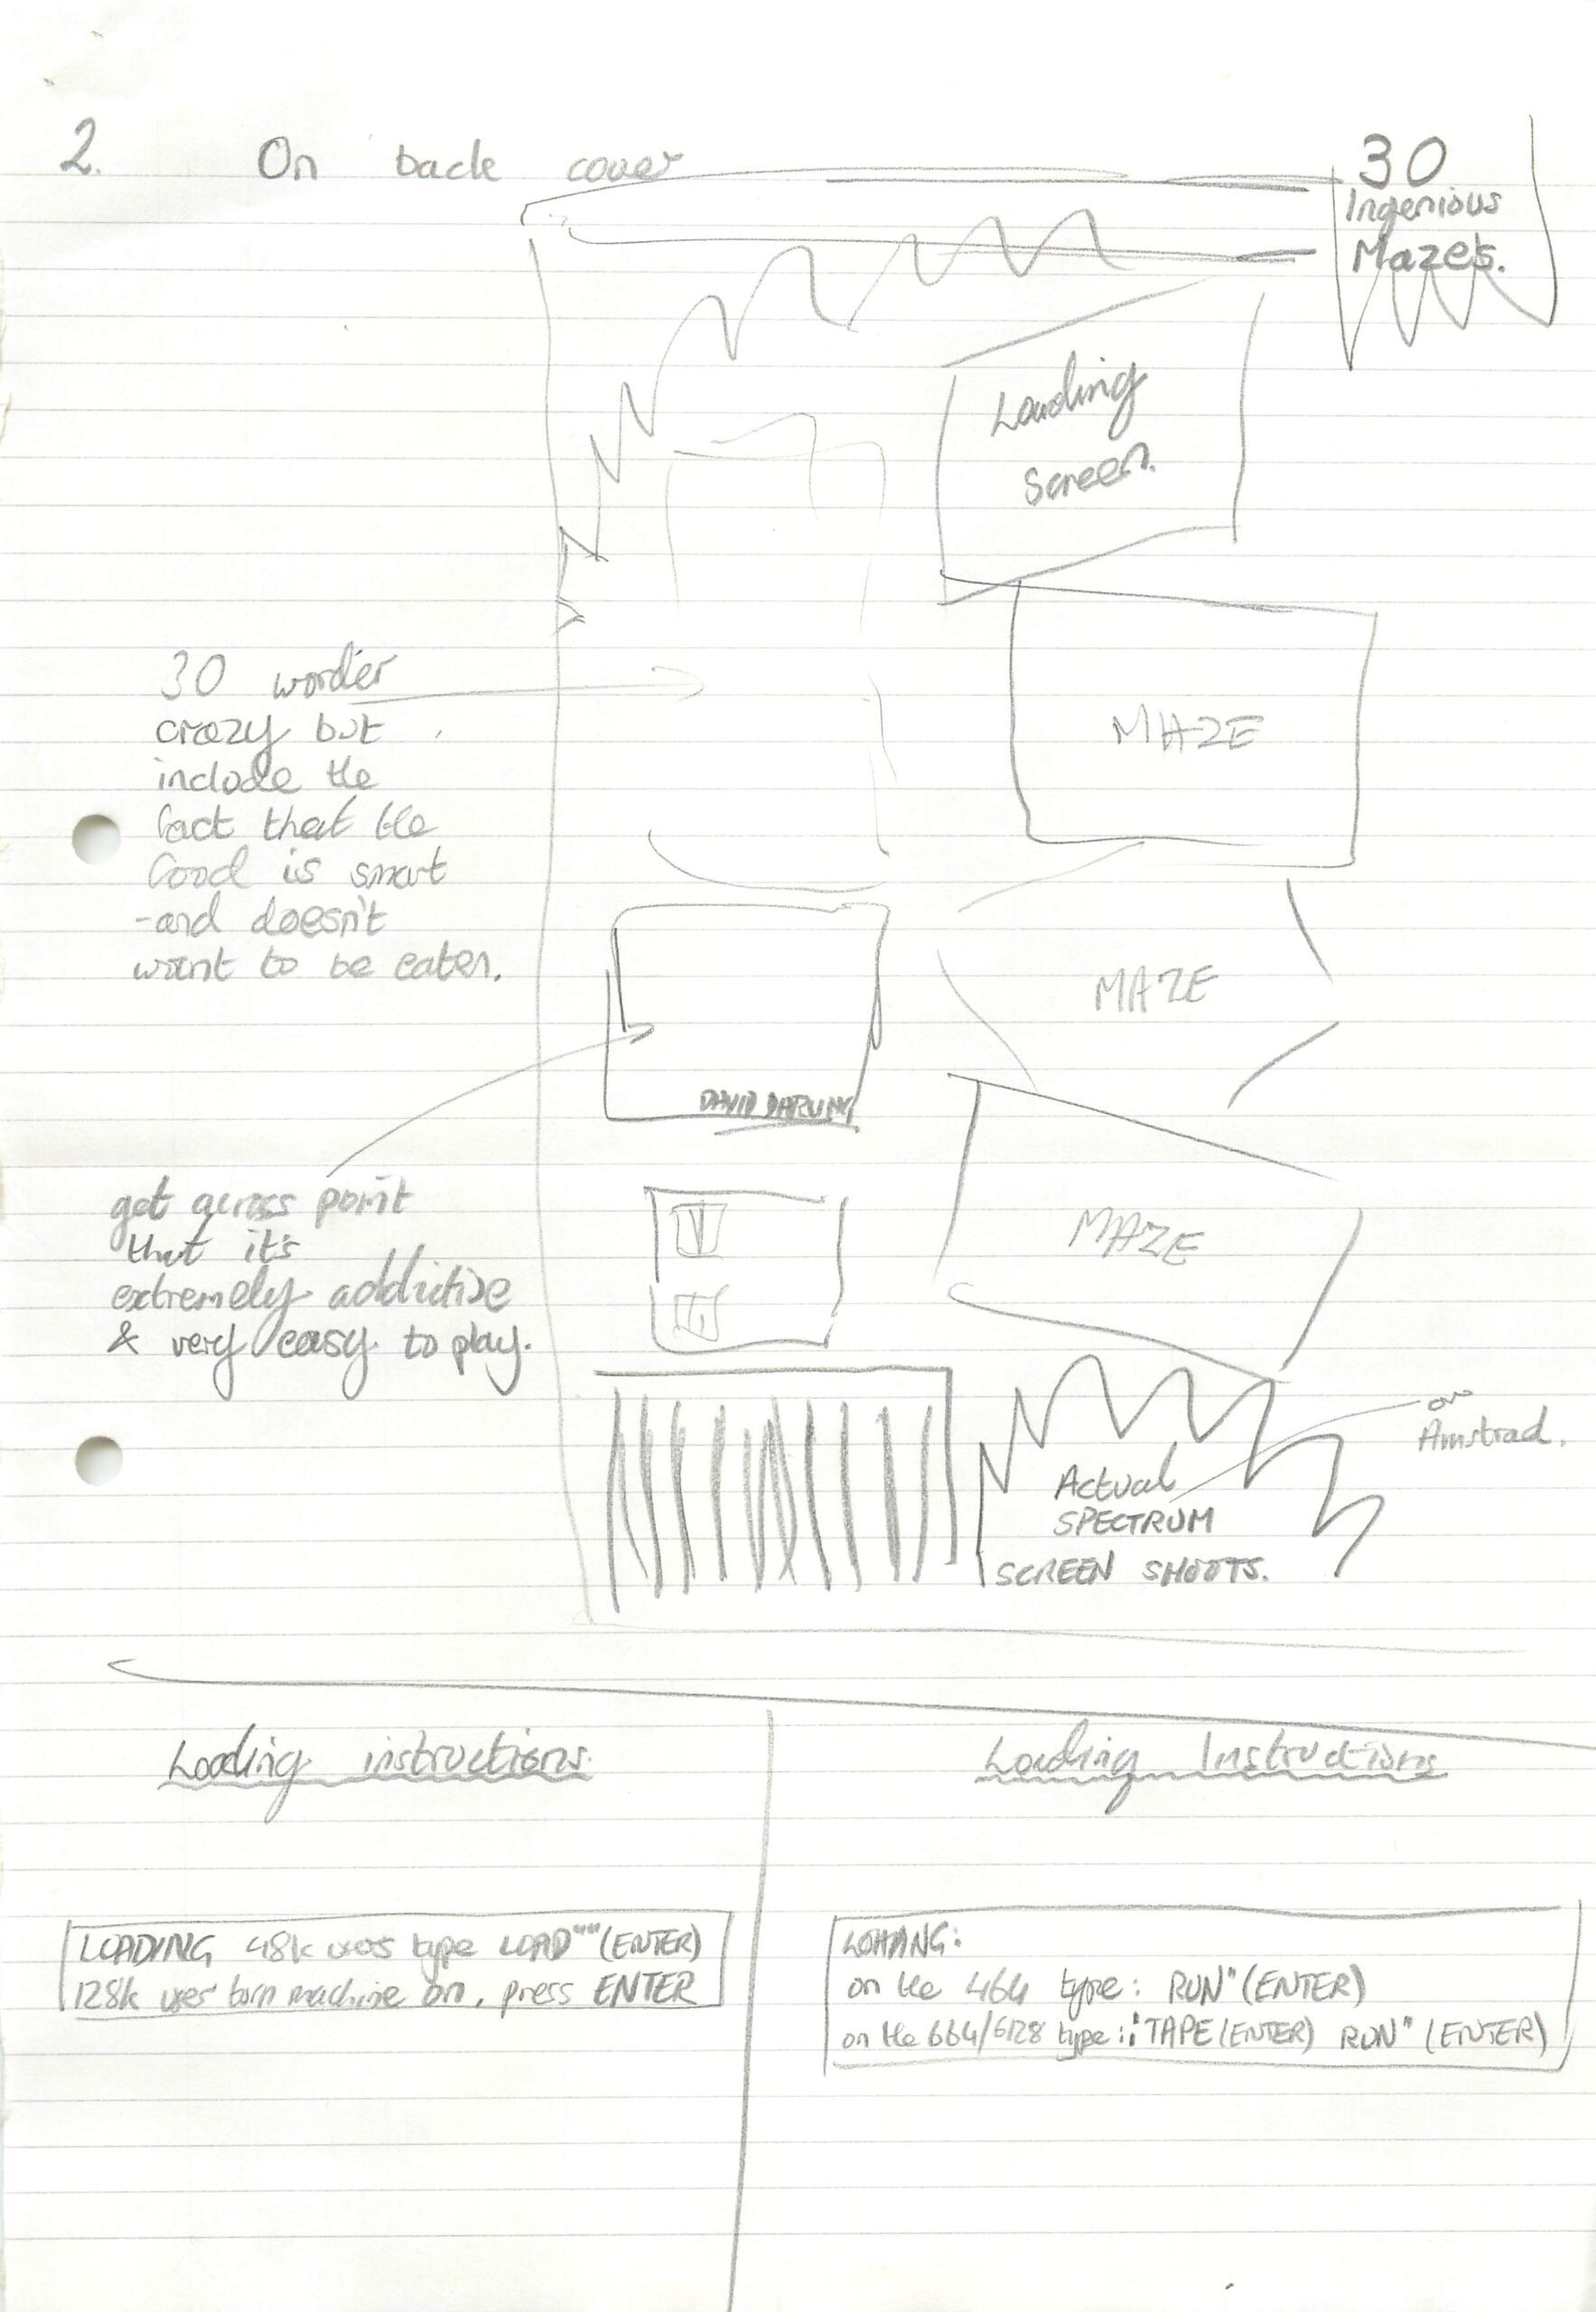 2. On back cover
30
Ingenious
Mazes.
Loading
Screen.
30 wordier
crazy but
include the
fact that the
food is smart
-and doesn't
want to be eaten.
MAZE
MAZE
DAVID DARLING
get across point
that it's
extremely addictive
& very easy to play.
MAZE
or
Amstrad.
Actual
SPECTRUM
SCREEN SHOOTS.
Loading instructions.
LOADING 48k users type LOAD""(ENTER)
128k user turn machine on, press ENTER
Loading Instructions
LOADING:
on the 464 type: RUN"(ENTER)
on the 664/6128 type: ¦TAPE(ENTER) RUN" (ENTER)